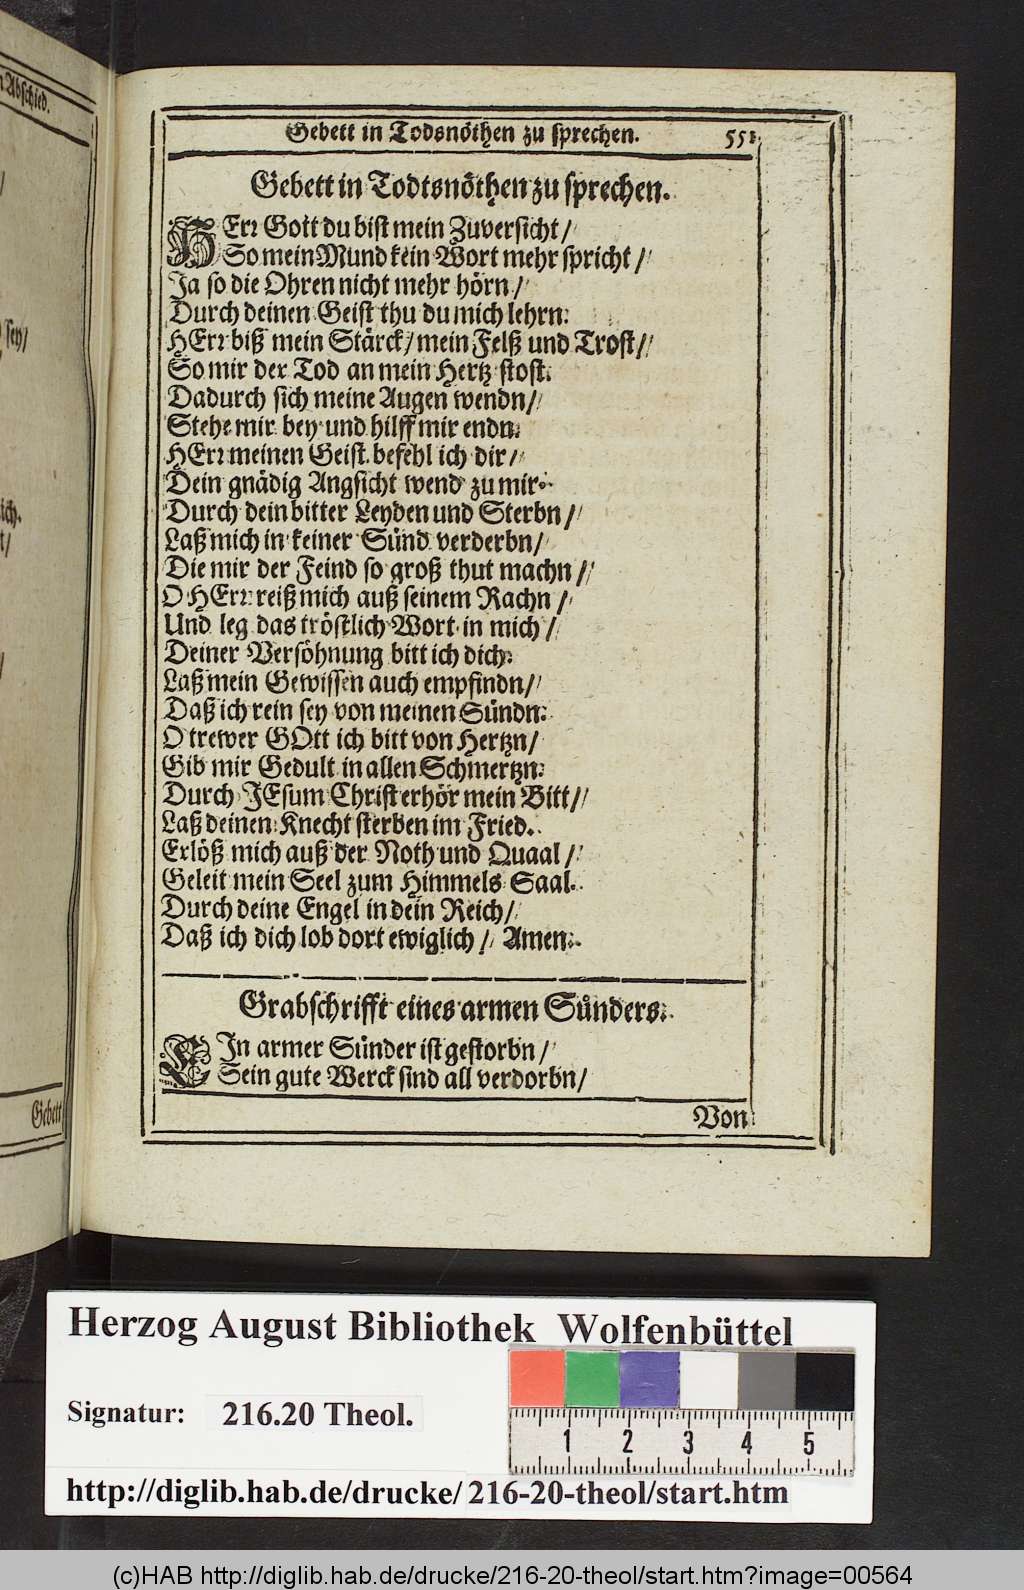 n Abschied.
sey/
ich.
t/
Gebett
Gebett in Todsnöthen zu sprechen. 551
Gebett in Todtsnöthen zu sprechen.
HErr Gott du bist mein Zuversicht/
So mein Mund kein Wort mehr spricht/
Ja so die Ohren nicht mehr hörn/
Durch deinen Geist thu du mich lehrn:
HErr biß mein Stärck/ mein Felß und Trost/
So mir der Tod an mein Hertz stost.
Dadurch sich meine Augen wendn/
Stehe mir bey und hilff mir endn.
HErr meinen Geist befehl ich dir/
Dein gnädig Angsicht wend zu mir.
Durch dein bitter Leyden und Sterbn/
Laß mich in keiner Sünd verderbn/
Die mir der Feind so groß thut machn/
O HErr reiß mich auß seinem Rachn/
Und leg das tröstlich Wort in mich/
Deiner Versöhnung bitt ich dich:
Laß mein Gewissen auch empfindn/
Daß ich rein sey von meinen Sündn:
O trewer GOtt ich bitt von Hertzn/
Gib mir Gedult in allen Schmertzn:
Durch JEsum Christ erhör mein Bitt/
Laß deinen Knecht sterben im Fried.
Erlöß mich auß der Noth und Quaal/
Geleit mein Seel zum Himmels Saal.
Durch deine Engel in dein Reich/
Daß ich dich lob dort ewiglich/ Amen.
Grabschrifft eines armen Sünders.
EIn armer Sünder ist gestorbn/
Sein gute Werck sind all verdorbn/
Von
Herzog August Bibliothek Wolfenbüttel
Signatur: 216.20 Theol.
1 2 3 4 5
http://diglib.hab.de/drucke/216-20-theol/start.htm
(c)HAB http://diglib.hab.de/drucke/216-20-theol/start.htm?image=00564